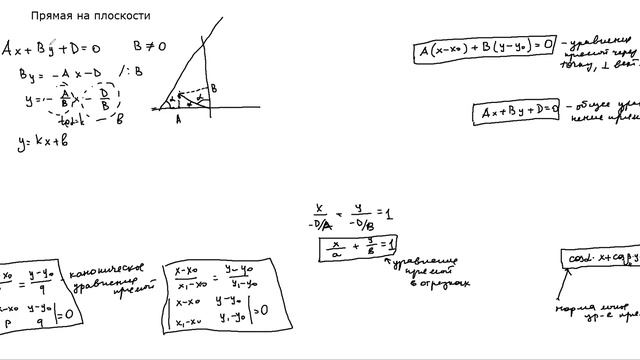 Прямая на плоскости
Ax+By+D=0 B≠0
By = -Ax-D /:B
y = -A/B x - D/B
tgα=k B
y=kx+b
α
B
A
A(x-x₀)+B(y-y₀)=0 - уравнение
прямой через
точку, ⊥
Ax+By+D=0 - общее
x/-D/A + y/-D/B = 1
x/a + y/b = 1
уравнение
прямой
в отрезках
y-y₀/q - каноническое
уравнение
прямой
|x-x₀ y-y₀|
|p q|=0
x-x₀/x₁-x₀ = y-y₀/y₁-y₀
|x-x₀ y-y₀|
|x₁-x₀ y₁-y₀|=0
cosα·x+cosβ